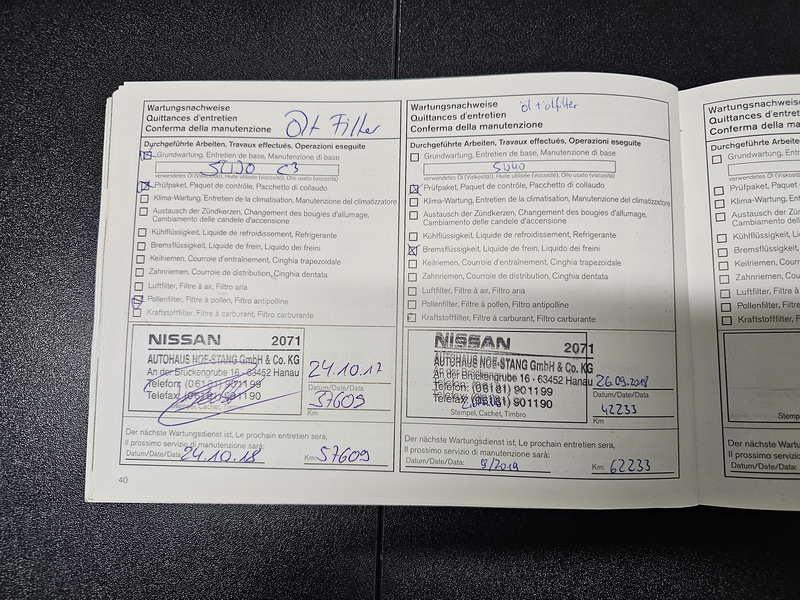 Wartungsnachweise
Quittances d'entretien
Conferma della manutenzione
Öl+ Filter
Durchgeführte Arbeiten, Travaux effectués, Operazioni eseguite
Grundwartung, Entretien de base, Manutenzione di base
5W30 C3
verwendetes Öl (Viskosität), Huile utilisée (viscosité), Olio usato (viscosità)
Prüfpaket, Paquet de contrôle, Pacchetto di collaudo
Klima-Wartung, Entretien de la climatisation, Manutenzione del climatizzatore
Austausch der Zündkerzen, Changement des bougies d'allumage,
Cambiamento delle candele d'accensione
Kühlflüssigkeit, Liquide de refroidissement, Refrigerante
Bremsflüssigkeit, Liquide de frein, Liquido dei freini
Keilriemen, Courroie d'entraînement, Cinghia trapezoidale
Zahnriemen, Courroie de distribution, Cinghia dentata
Luftfilter, Filtre à air, Filtro aria
Pollenfilter, Filtre à pollen, Filtro antipolline
Kraftstofffilter, Filtre à carburant, Filtro carburante
NISSAN 2071
AUTOHAUS NOE-STANG GmbH & Co. KG
An der Bruckengrube 16 - 63452 Hanau
Telefon: (06181) 901199
Telefax: (06181) 901190
Stempel, Cachet, Timbro
24.10.17
Datum/Date/Data
37609
Km
Der nächste Wartungsdienst ist, Le prochain entretien sera,
Il prossimo servizio di manutenzione sarà:
Datum/Date/Data: 24.10.18 Km: 57609
40
Wartungsnachweise
Quittances d'entretien
Conferma della manutenzione
öl + ölfilter
Durchgeführte Arbeiten, Travaux effectués, Operazioni eseguite
Grundwartung, Entretien de base, Manutenzione di base
5W40
verwendetes Öl (Viskosität), Huile utilisée (viscosité), Olio usato (viscosità)
Prüfpaket, Paquet de contrôle, Pacchetto di collaudo
Klima-Wartung, Entretien de la climatisation, Manutenzione del climatizzatore
Austausch der Zündkerzen, Changement des bougies d'allumage,
Cambiamento delle candele d'accensione
Kühlflüssigkeit, Liquide de refroidissement, Refrigerante
Bremsflüssigkeit, Liquide de frein, Liquido dei freini
Keilriemen, Courroie d'entraînement, Cinghia trapezoidale
Zahnriemen, Courroie de distribution, Cinghia dentata
Luftfilter, Filtre à air, Filtro aria
Pollenfilter, Filtre à pollen, Filtro antipolline
Kraftstofffilter, Filtre à carburant, Filtro carburante
NISSAN 2071
AUTOHAUS NOE-STANG GmbH & Co. KG
An der Bruckengrube 16 - 63452 Hanau
Telefon: (06181) 901199
Telefax: (06181) 90 1190
Stempel, Cachet, Timbro
26.09.2018
Datum/Date/Data
42233
Km
Der nächste Wartungsdienst ist, Le prochain entretien sera,
Il prossimo servizio di manutenzione sarà:
Datum/Date/Data: 9/2019 Km: 62233
Wartungsnachweise
Quittances d'entretien
Conferma della
Durchgeführte Arbeiten,
Grundwartung, Entr
verwendetes Öl (Viskosität),
Prüfpaket, Paquet de
Klima-Wartung, Entr
Austausch der Zünd
Cambiamento delle
Kühlflüssigkeit, Liqu
Bremsflüssigkeit, Li
Keilriemen, Courroie
Zahnriemen, Courro
Luftfilter, Filtre à air,
Pollenfilter, Filtre à
Kraftstofffilter, Filtre
Stemp
Der nächste Wartungs
Il prossimo servizio di
Datum/Date/Data: